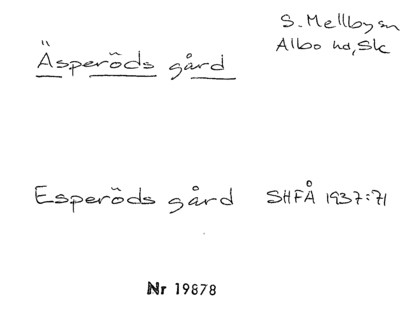 Äsperöds gård
S. Mellby sn
Albo hd, Sk
Esperöds gård SHFÅ 1937:71
Nr 19878